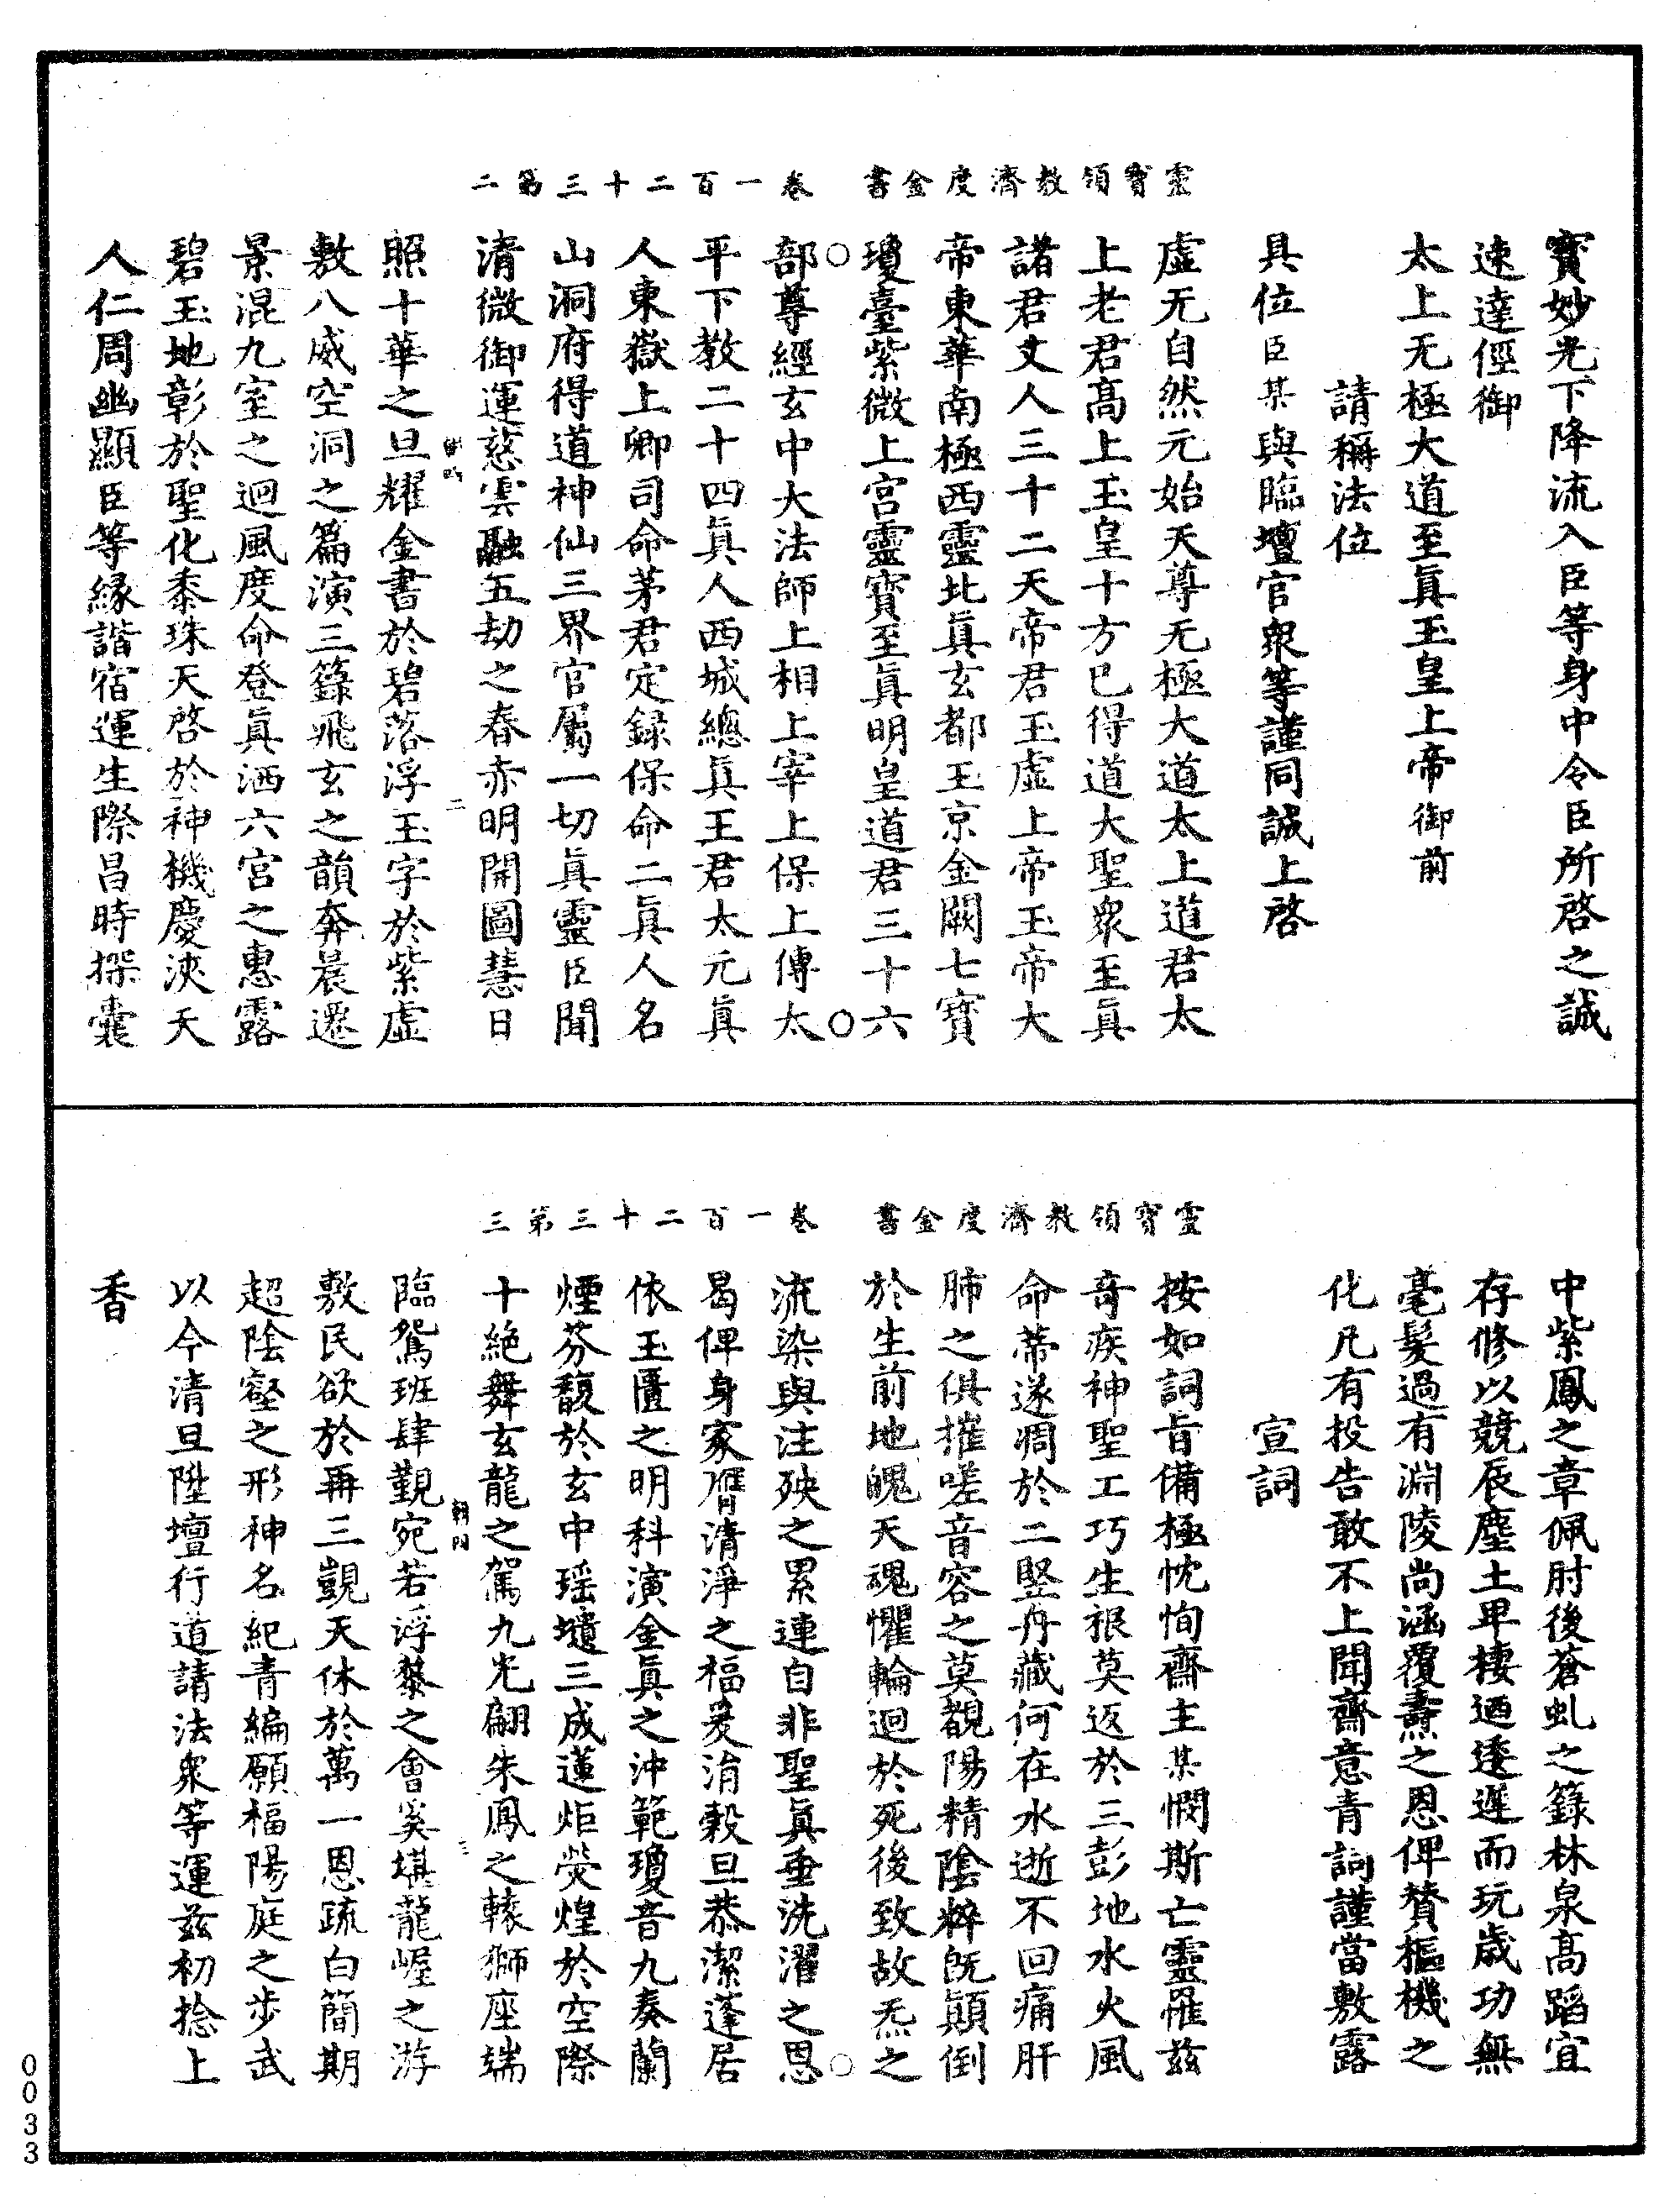 寳妙光下降流入臣等身中令臣所啓之誠
速達徑御
太上无極大道至眞玉皇上帝御前
請稱法位
具位臣某與臨壇官衆等謹同誠上啓
靈寳領教濟度金書 卷一百二十三第二
虛无自然元始天尊无極大道太上道君太
上老君高上玉皇十方已得道大聖衆至眞
諸君丈人三十二天帝君玉虛上帝玉帝大
帝東華南極西靈北眞玄都玉京金闕七寳
瓊臺紫微上宮靈寳至眞明皇道君三十六
部尊經玄中大法師上相上宰上保上傅太
平下教二十四眞人西城總眞王君太元眞
人東嶽上卿司命茅君定録保命二眞人名
山洞府得道神仙三界官屬一切眞靈臣聞
清微御運慈雲融五劫之春赤明開圖慧日
二
照十華之旦耀金書於碧落浮玉字於紫虛
敷八威空洞之篇演三籙飛玄之韻奔晨邁
景混九室之迴風度命登眞洒六宮之惠露
碧玉地彰於聖化黍珠天啓於神機慶浹天
人仁周幽顯臣等緣諧宿運生際昌時探囊
中紫鳳之章佩肘後蒼虬之籙林泉高蹈宜
存修以競辰塵土卑棲迺逶遲而玩歲功無
毫髮過有淵陵尚涵覆燾之恩俾賛樞機之
化凡有投告敢不上聞齋意青詞謹當敷露
宣詞
靈寳領教濟度金書 卷一百二十三第三
按如詞旨備極忱恂齋主某憫斯亡靈罹茲
奇疾神聖工巧生根莫返於三彭地水火風
命蒂遂凋於二竪舟藏何在水逝不回痛肝
肺之俱摧嗟音容之莫覩陽精陰粹旣顚倒
於生前地魄天魂懼輪迴於死後致故炁之
流染與注殃之累連自非聖眞垂洗濯之恩
曷俾身家膺清淨之福爰涓穀旦恭潔蓬居
依玉匱之明科演金眞之沖範瓊音九奏蘭
煙芬馥於玄中瑶壝三成蓮炬熒煌於空際
十絶舞玄龍之駕九光翩朱鳳之轅獅座端
三
臨鴛班肆覲宛若浮黎之會奚堪龍崛之游
敷民欲於再三覬天休於萬一恩疏白簡期
超陰壑之形神名紀青編願福陽庭之步武
以今清旦陞壇行道請法衆等運茲初捻上
香
0033